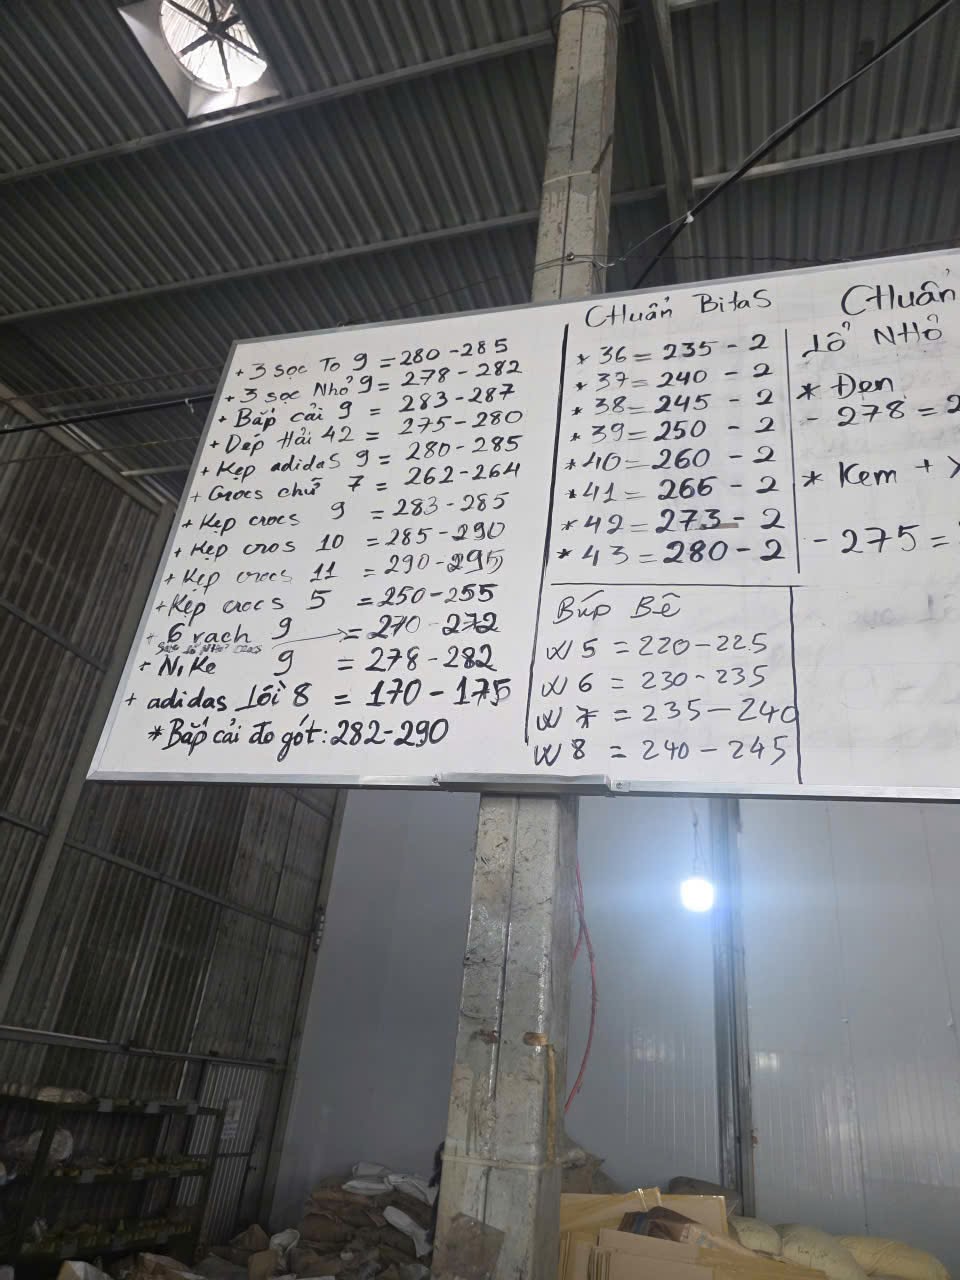 + 3 sọc To 9 = 280 - 285
+ 3 sọc Nhỏ 9 = 278 - 282
+ Bắp cải 9 = 283 - 287
+ Dép Hải 42 = 275 - 280
+ Kẹp adidas 9 = 280 - 285
+ Crocs chữ 7 = 262 - 264
+ Kẹp crocs 9 = 283 - 285
+ Kẹp cros 10 = 285 - 290
+ Kẹp crocs 11 = 290 - 295
+ Kẹp crocs 5 = 250 - 255
+ 6 vạch 9 = 270 - 272
+ Nike 9 = 278 - 282
+ adidas Lối 8 = 170 - 175
* Bắp cải đo gót: 282 - 290
CHuẩn BitaS
* 36 = 235 - 2
* 37 = 240 - 2
* 38 = 245 - 2
* 39 = 250 - 2
* 40 = 260 - 2
* 41 = 266 - 2
* 42 = 273 - 2
* 43 = 280 - 2
Búp Bê
W 5 = 220 - 225
W 6 = 230 - 235
W 7 = 235 - 240
W 8 = 240 - 245
CHuẩn
Lỗ NHỎ
* Đen
- 278 = 2
* Kem +
- 275 =